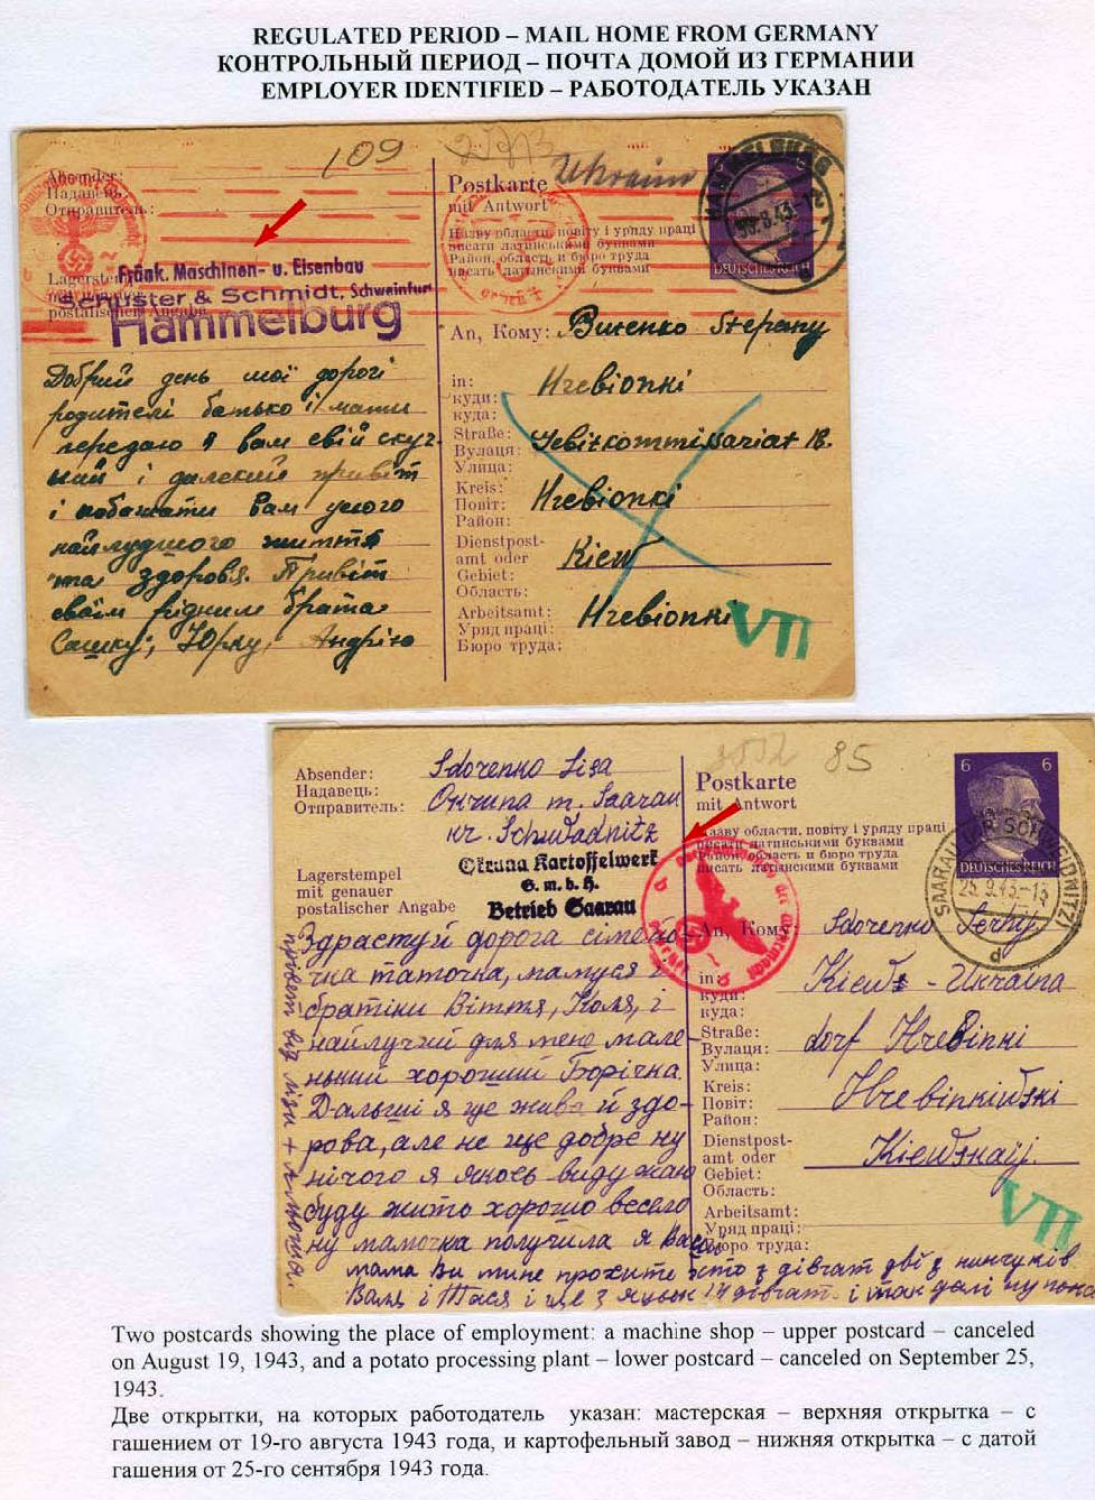 REGULATED PERIOD – MAIL HOME FROM GERMANY
КОНТРОЛЬНЫЙ ПЕРИОД – ПОЧТА ДОМОЙ ИЗ ГЕРМАНИИ
EMPLOYER IDENTIFIED – РАБОТОДАТЕЛЬ УКАЗАН
109
Absender:
Надавець:
Отправитель:
Lagerstempel
postalischer Angabe
Fränk. Maschinen- u. Eisenbau
Schuster & Schmidt, Schweinfurt
Hammelburg
Добрий день мої дорогі
родителі батько і мати
передаю я вам свій скуч-
ний і далекий привіт
і побажати вам усего
найлудшого життя
та здоровя. Привіт
своїм рідним брата
Сашку, Юрку, Андрію
Ukraine
Postkarte
mit Antwort
Назву области, повіту і уряду праці
писати латинськими буквами
Район, область и бюро труда
писать латинскими буквами
HAMMELBURG
8.43
DEUTSCHES REICH
An, Кому: Stepany
in: Hrebionki
куди:
куда:
Straße: Gebitkommissariat
Вулаця:
Улица:
Kreis: Hrebionki
Повіт:
Район:
Dienstpost-
amt oder Kiew
Gebiet:
Область:
Arbeitsamt: Hrebionki
Уряд праці:
Бюро труда:
VII
Absender: Sdorenko Lisa
Надавець: Okruna m. Saarau
Отправитель: kr. Schwadnitz
Lagerstempel
mit genauer
postalischer Angabe
Okruna Kartoffelwerk
G. m. b. H.
Betrieb Saarau
Здрастуй дорога сімейо-
чка таточка, мамуся і
братіки Вітття, Коля, і
найлучий для мене мале-
нький хороший Борічка.
Дальші я ще жива й здо-
рова, але не ще добре ну
нічого я якось виду жаю
буду жито хорошо весело
ну мамочка получила я
мама Ви мине прохите хто з дівчат дві з
Валя і Тася і ще з 14 дівчат і так далі ну пока
привет від Лізи +
85
Postkarte
mit Antwort
Назву области, повіту і уряду праці
писати латинськими буквами
Район, область и бюро труда
писать латинскими буквами
6 6
DEUTSCHES REICH
SAARAU (KR SCHWEIDNITZ)
25.9.43.-13
d
An, Кому: Sdorenko Serhij
in: Kiews - Ukraina
куди:
куда:
Straße: dorf Hrebinki
Вулаця:
Улица:
Kreis: Hrebinkiwski
Повіт:
Район:
Dienstpost-
amt oder Kiewskaij.
Gebiet:
Область:
Arbeitsamt:
Уряд праці:
Бюро труда:
VII
Two postcards showing the place of employment: a machine shop – upper postcard – canceled
on August 19, 1943, and a potato processing plant – lower postcard – canceled on September 25,
1943.
Две открытки, на которых работодатель указан: мастерская – верхняя открытка – с
гашением от 19-го августа 1943 года, и картофельный завод – нижняя открытка – с датой
гашения от 25-го сентября 1943 года.